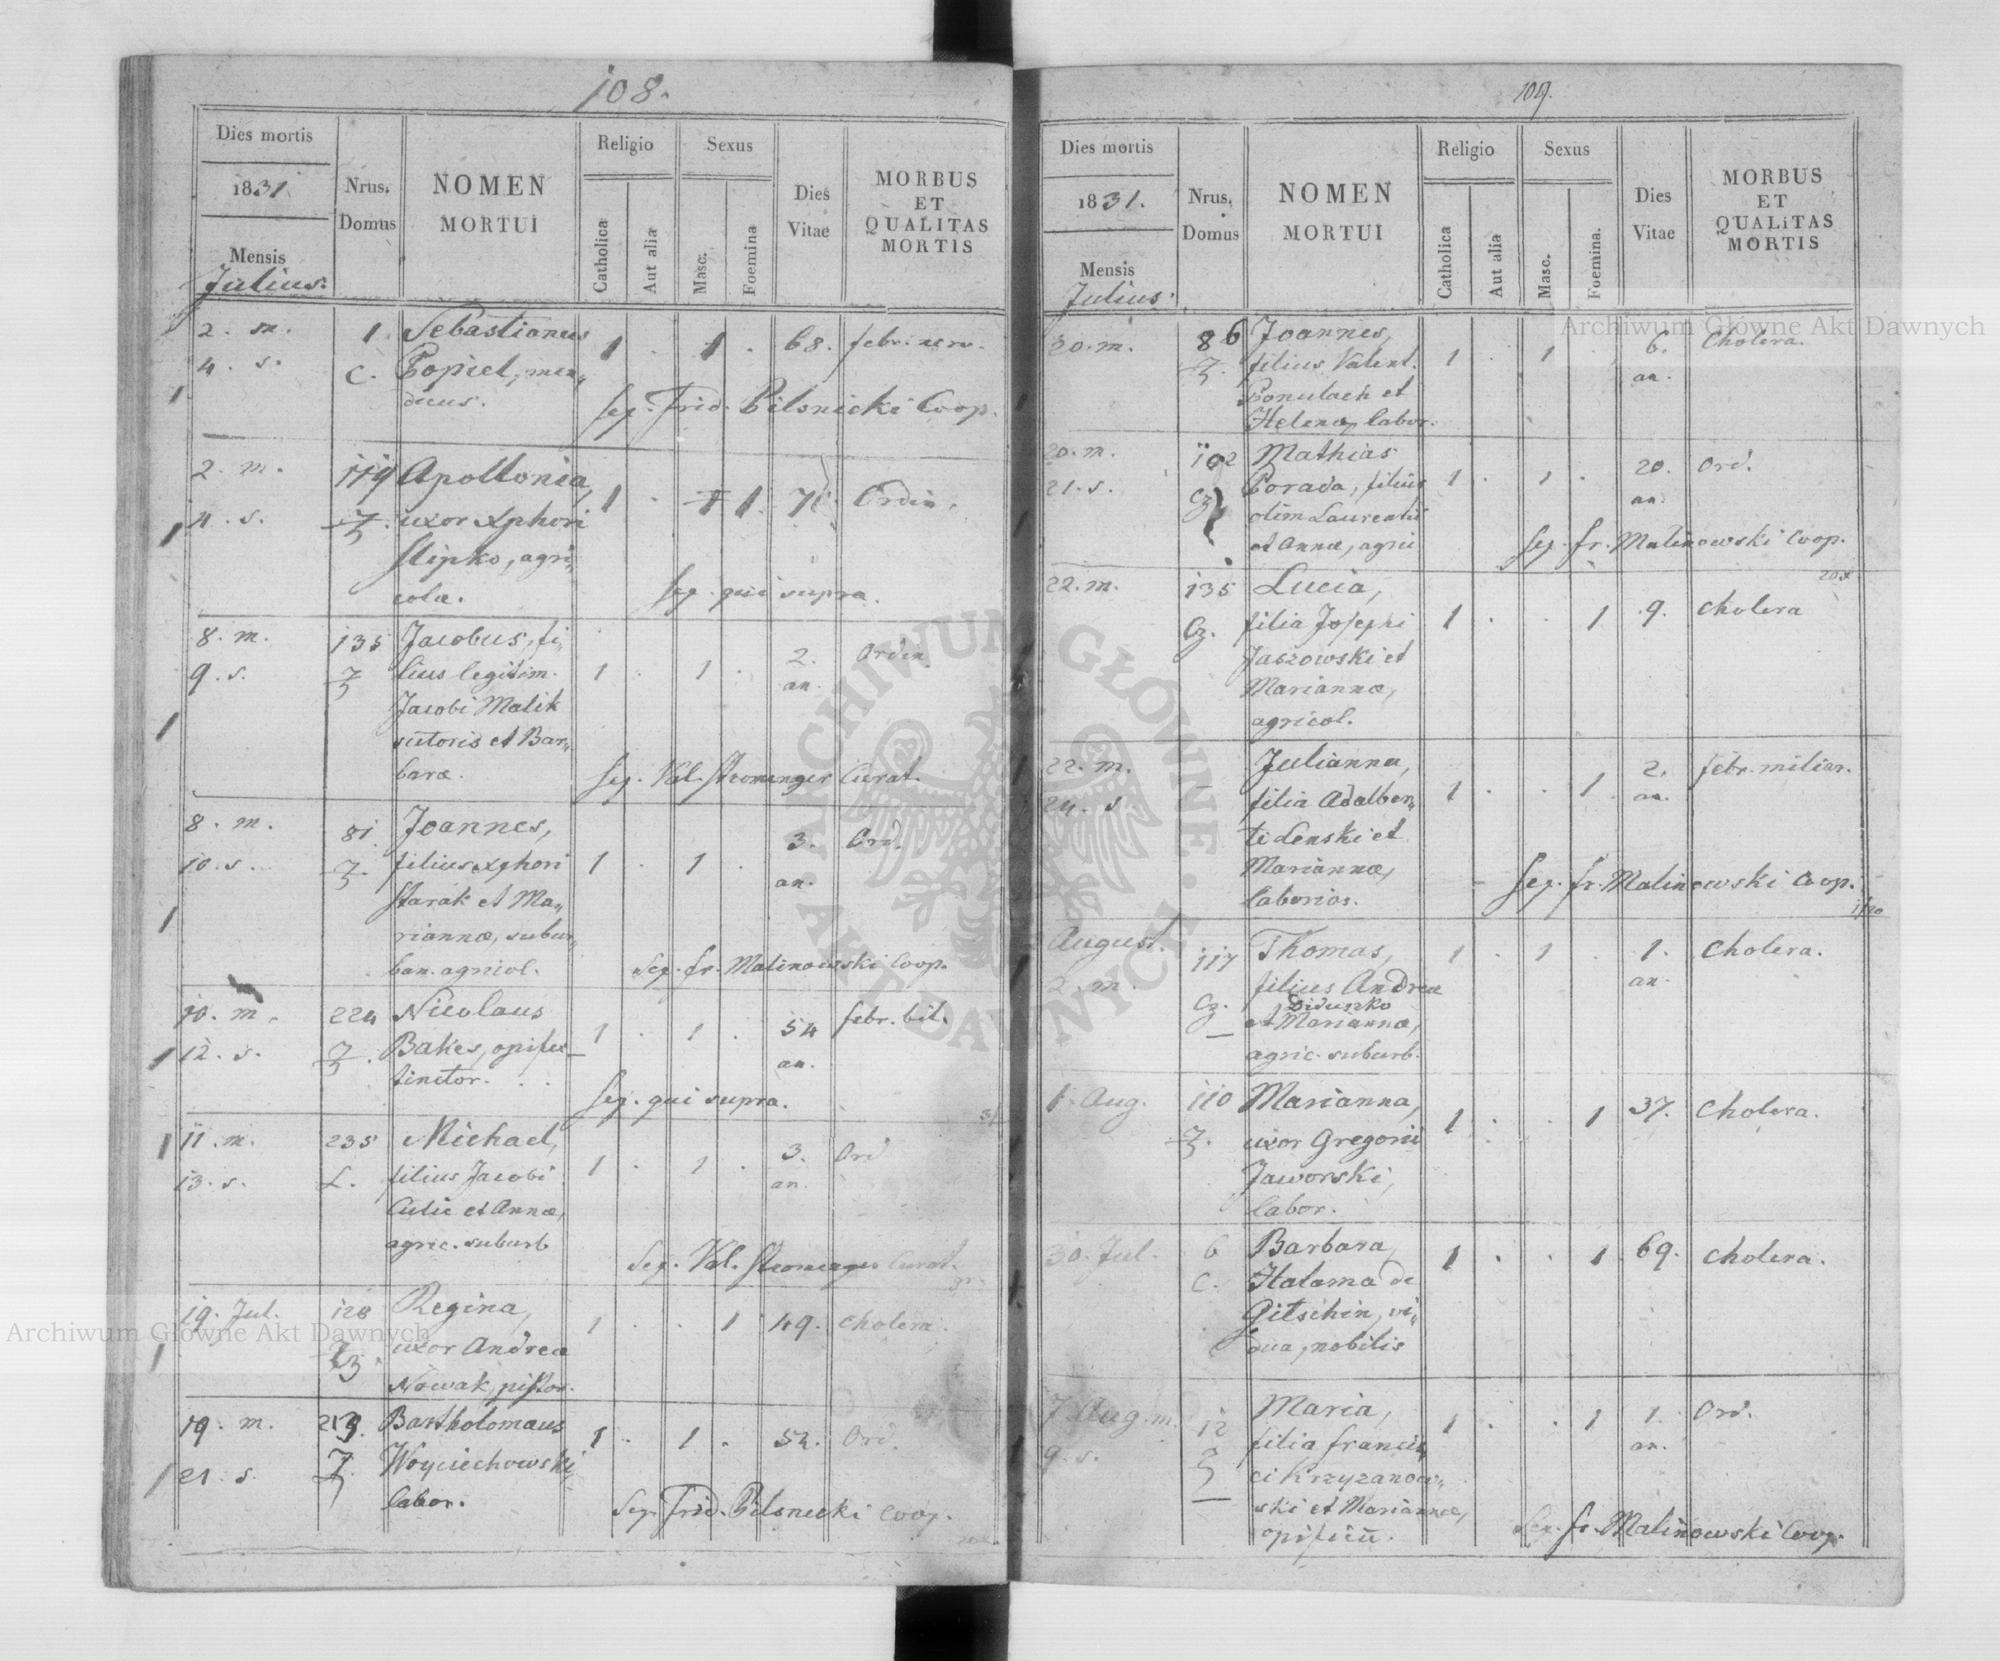 108.
Dies mortis
1831.
Mensis
Julius.
Nrus. Domus
NOMEN
MORTUI
Religio
Catholica
Aut alia
Sexus
Masc.
Foemina
Dies
Vitae
MORBUS
ET
QUALITAS
MORTIS
2. m. 1. Sebastianus 1 . 1 . 68. febr. nerv.
4. s. C. Popiel, men„
dicus.
Sep. Frid. Pilsnicki Coop.
2. m. 119 Apollonia, 1 . 1. Ordin.
4. s. uxor Xphori
Slipko, agri„
colae.
Sep. qui supra.
8. m. 135 Jacobus, fi„ 1 . 1 . 2. Ordin.
9. s. lius legitim. an.
Jacobi Malik
sutoris et Bar„
barae.
Sep. Val. Stromenger Curat.
8. m. 81. Joannes, 1 . 1 . 3. Ord.
10. s. filius Xphori an.
Starak et Ma„
riannae, subur„
ban. agricol.
Sep. fr. Malinowski Coop.
10. m. 224 Nicolaus 1 . 1 . 54 febr. bil.
12. s. Bakes, opifex an.
tinctor.
Sep. qui supra.
11. m. 235 Michael, 1 . 1 . 3. Ord
13. s. L. filius Jacobi an.
Culic et Annae,
agric. suburb
Sep. Val. Stromenger Curat.
19. Jul. 128 Regina, 1 . . 1 49. cholera.
uxor Andreae
Nowak, pistor.
19. m. 213. Bartholomaus 1 . 1 . 52. Ord.
21. s. Woyciechowski,
labor.
Sep. Frid. Pilsnicki Coop.
109.
Dies mortis
1831.
Mensis
Julius.
Nrus. Domus
NOMEN
MORTUI
Religio
Catholica
Aut alia
Sexus
Masc.
Foemina.
Dies
Vitae
MORBUS
ET
QUALITAS
MORTIS
20. m. 86 Joannes, 1 . 1 . 6. Cholera.
filius Valent. an.
Ponulach et
Helenae, labor.
20. m. 102 Mathias 1 . 1 . 20. Ord.
21. s. Cz. Porada, filius an.
olim Laurentii
et Annae, agri
Sep. fr. Malinowski Coop.
22. m. 135 Lucia, 1 . . 1 9. cholera
Cz. filia Josephi
Jaszowski et
Mariannae,
agricol.
22. m. – Julianna, 1 . . 1 2. febr. miliar.
24. s. filia Adalber„ an.
ti Lenski et
Mariannae,
laborios.
Sep. fr. Malinowski Coop.
August. 117 Thomas, 1 . 1 . 1. cholera.
2. m. Cz. filius Andreae an.
Diduszko
et Mariannae,
agric. suburb.
1. Aug. 110 Marianna, 1 . . 1 37. cholera.
uxor Gregorii
Jaworski,
labor.
30. Jul. 6 Barbara, 1 . . 1 69. cholera.
C. Halama de
Gitschin, vi„
dua, nobilis
7. Aug. m. 12 Maria, 1 . . 1 1. Ord.
9. s. filia Francis„ an.
ci Krzyzanow„
ski et Mariannae,
opificū.
Sep. fr. Malinowski Coop.
Archiwum Główne Akt Dawnych
Archiwum Główne Akt Dawnych
ARCHIWUM GŁÓWNE · AKT DAWNYCH ·